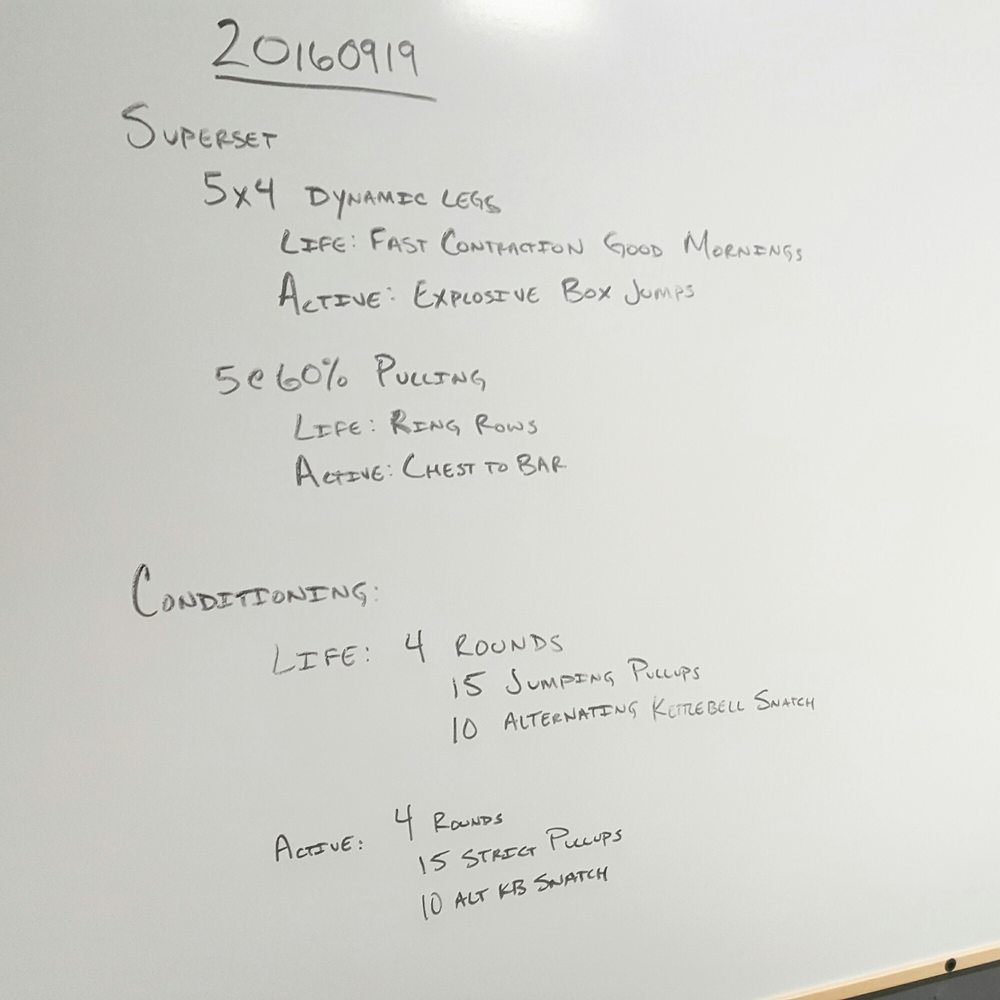 20160919
SUPERSET
5x4 DYNAMIC LEGS
LIFE: FAST CONTRACTION GOOD MORNINGS
ACTIVE: EXPLOSIVE BOX JUMPS
5@60% PULLING
LIFE: RING ROWS
ACTIVE: CHEST TO BAR
CONDITIONING:
LIFE: 4 ROUNDS
15 JUMPING PULLUPS
10 ALTERNATING KETTLEBELL SNATCH
ACTIVE: 4 ROUNDS
15 STRICT PULLUPS
10 ALT KB SNATCH